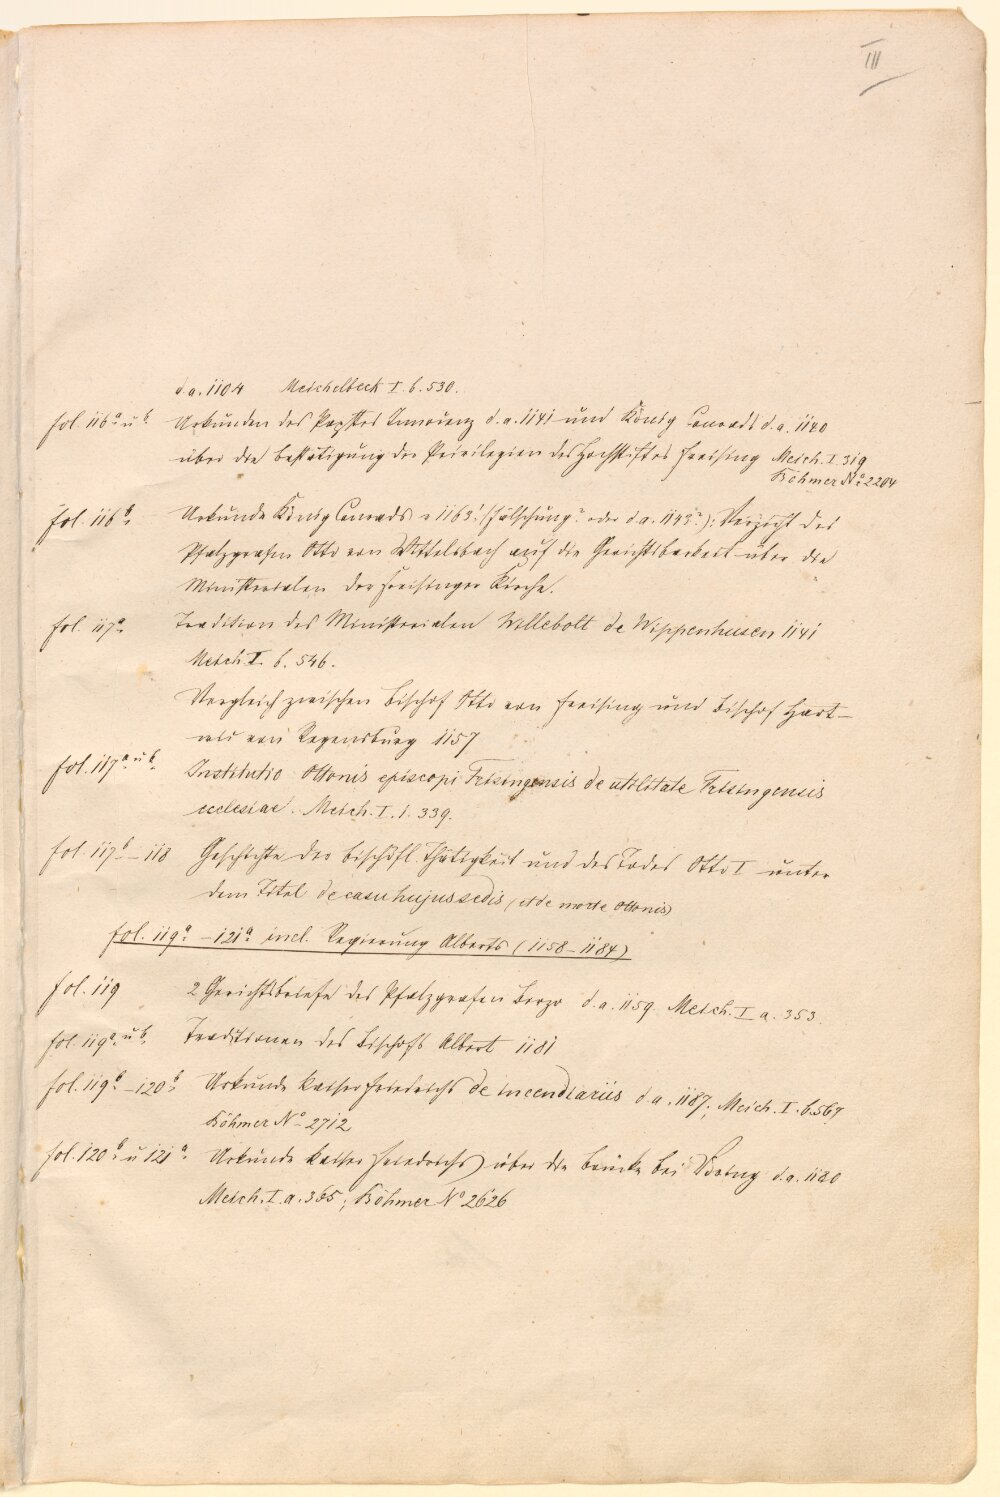 III
d. a. 1104 Meichelbeck I. b. 530.
fol. 116ª u b. Urkunden des Papstes Innocenz d. a. 1141 und König Conrads d. a. 1140
über die Bestätigung der Privilegien des Hochstiftes Freising Meich. I. 319
Böhmer Nº 2204
fol. 116b. Urkunde König Conrads v 1163! (Fälschung? oder d a. 1143?): Verzicht des
Pfalzgrafen Otto von Wittelsbach auf die Gerichtsbarkeit über die
Ministerialen der Freisinger Kirche.
fol. 117ª. Tradition des Ministerialen Willebolt de Wippenhusen 1141
Meich. I. b. 546.
Vergleich zwischen Bischof Otto von Freising und Bischof Hart-
wis von Regensburg 1157
fol. 117ª u b. Institutio Ottonis episcopi Frisingensis de utilitate Frisingensis
ecclesiae. Meich. I. 1. 339.
fol. 117b – 118 Geschichte der bischöfl. Thätigkeit und des Todes Otto I unter
dem Titel de casu hujus sedis (et de morte Ottonis)
fol. 119ª – 121ª incl. Regierung Alberts (1158 – 1184)
fol. 119 2 Gerichtsbriefe des Pfalzgrafen d. a. 1159. Meich. I a. 353.
fol. 119ª u b. Traditionen des Bischofs Albert 1181
fol. 119b. – 120b. Urkunde Kaiser Friedrichs de incendiariis d. a. 1187; Meich. I. b. 567
Böhmer Nº 2712
fol. 120b. u 121ª. Urkunde Kaiser Friedrichs über die Brücke bei Vering d. a. 1180
Meich. I. a. 365; Böhmer Nº 2626